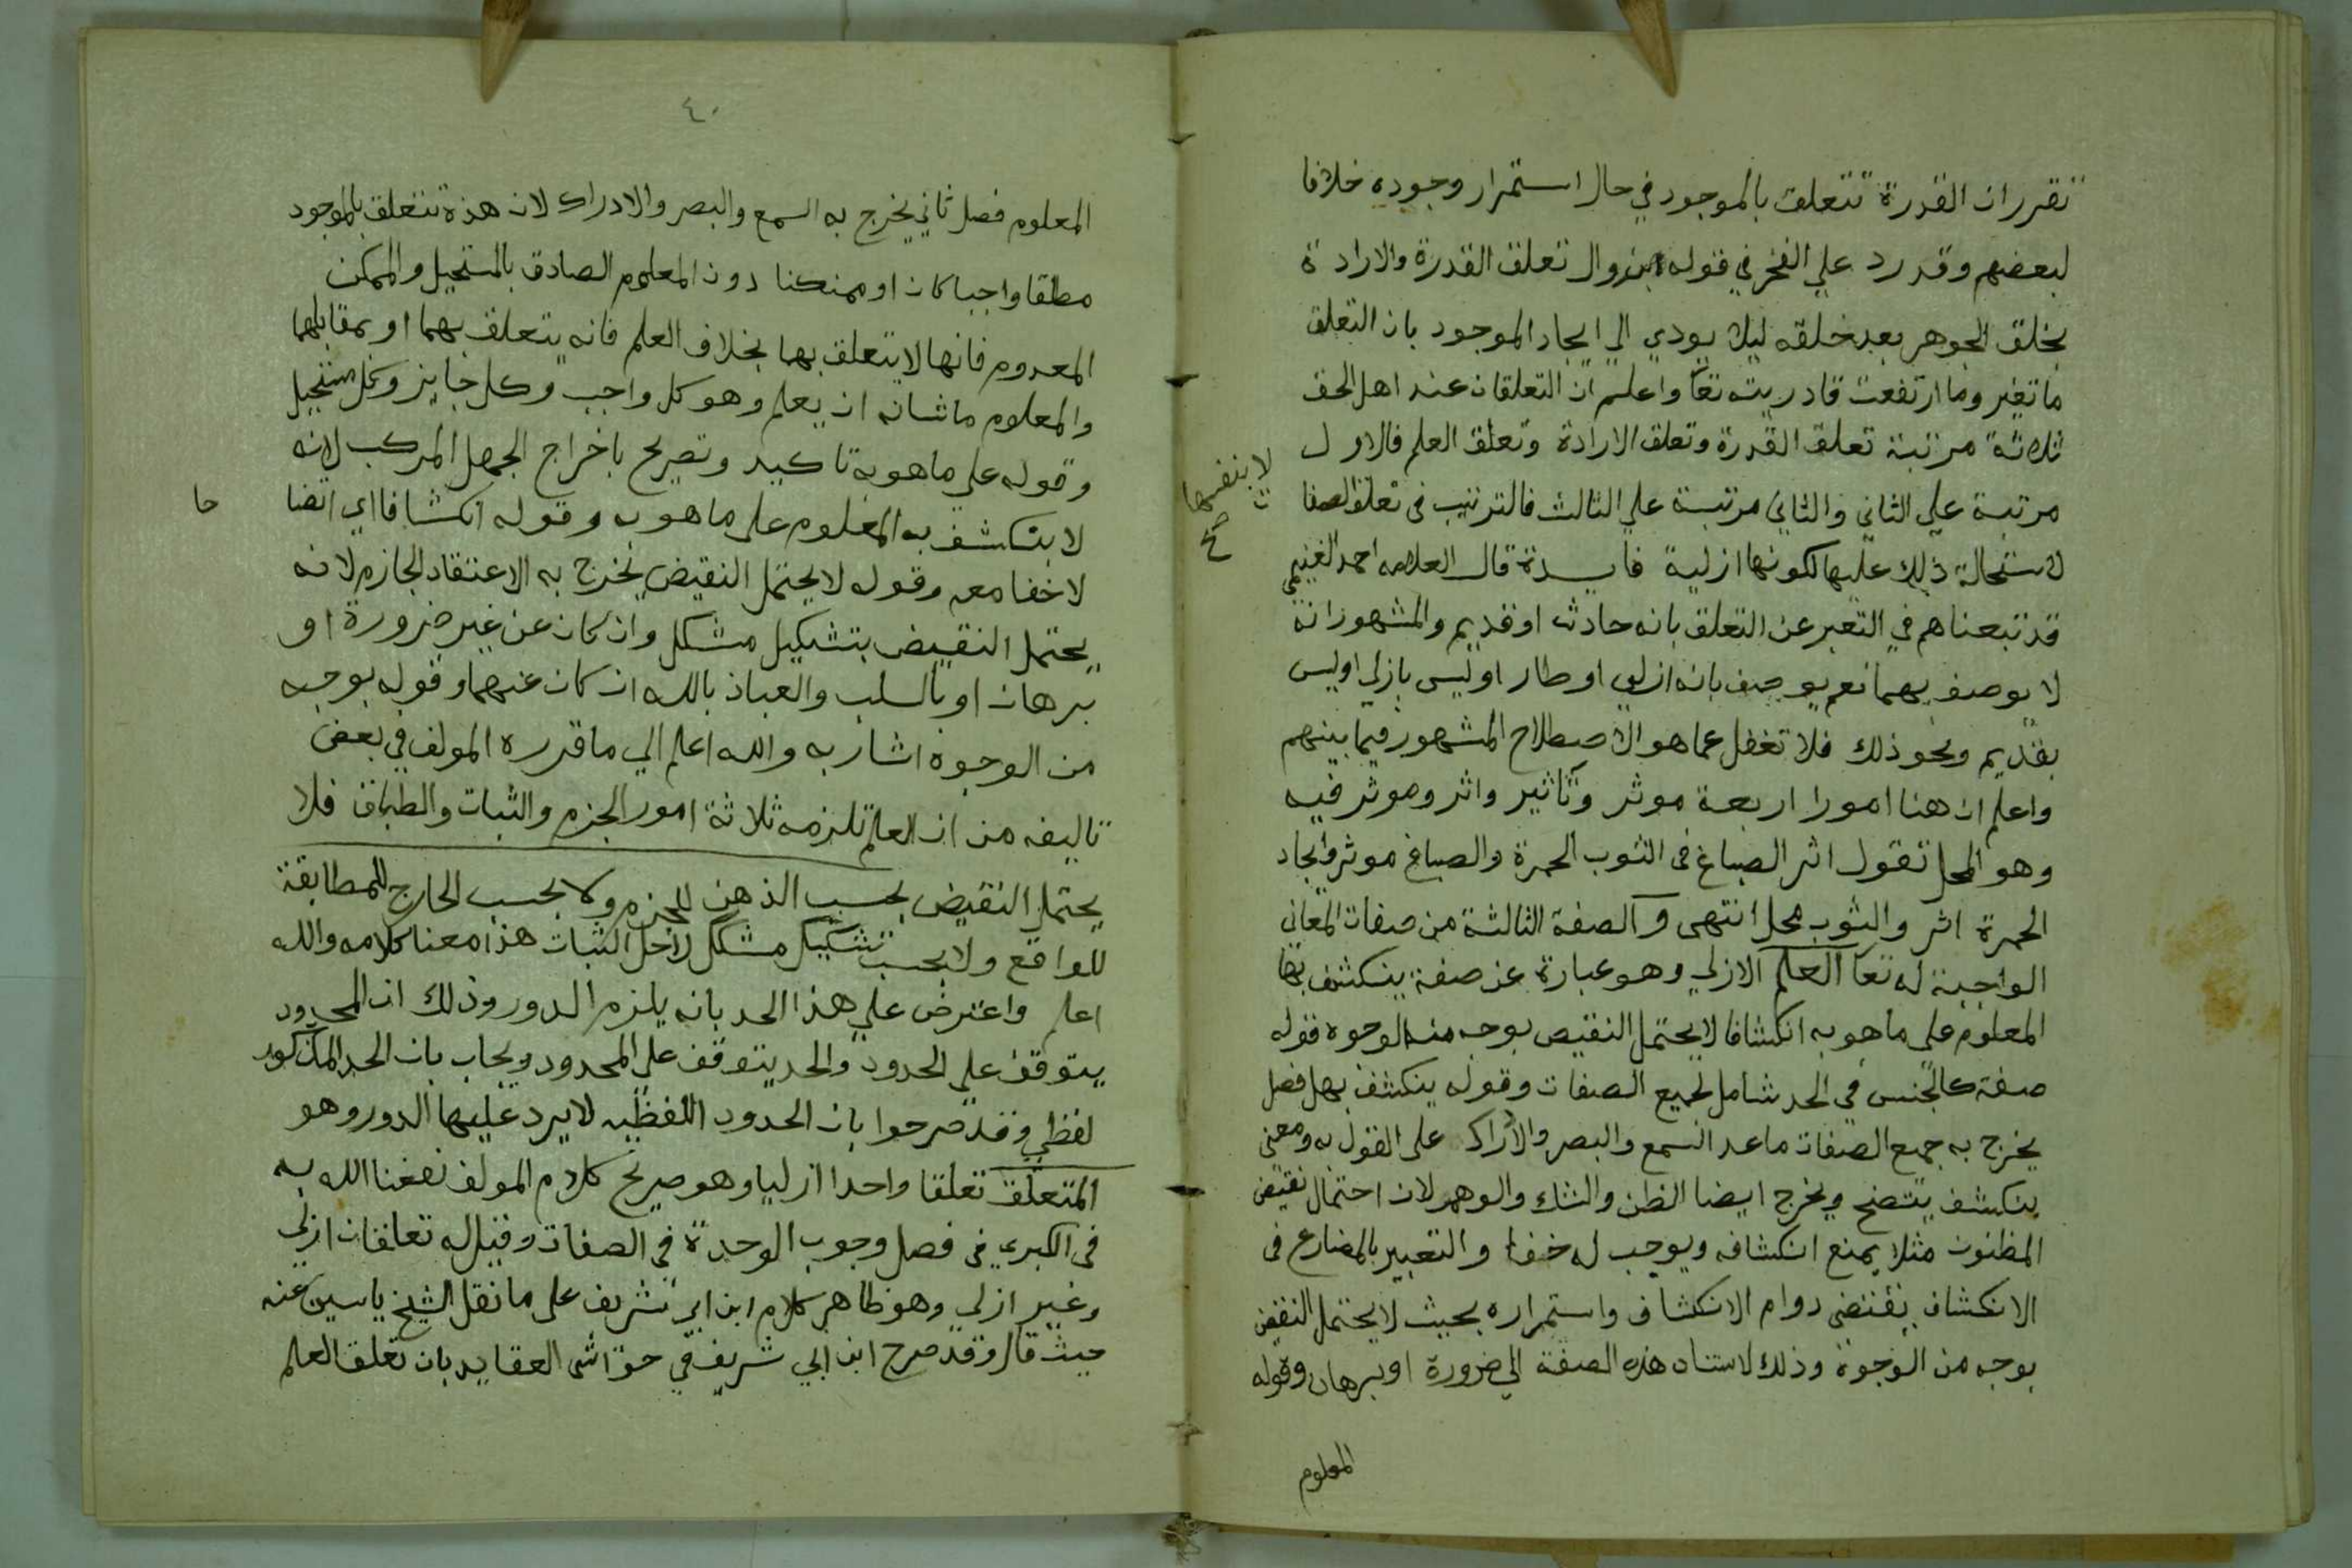 تقرر ان القدرة تتعلق بالموجود في حال استمرار وجوده خلافا
لبعضهم وقد رد علي الفخر في قوله بزوال تعلق القدرة والارادة
بخلق الجوهر بعد خلقه ليلا يودي الي ايجاد الموجود بان التعلق
ما تغير وما ارتفعت قادريته تعا واعلم ان التعلقات عند اهل الحق
ثلاثة مرتبة تعلق القدرة وتعلق الارادة وتعلق العلم فالاول
مرتبة علي الثاني والثاني مرتبة علي الثالث فالترتيب في تعلق الصفا
لا بنفسها
صح
لاستحالة ذلك عليها لكونها ازلية فايدة قال العلامه احمد الغنيمي
قد تبعناهم في التعبر عن التعلق بانه حادث او قديم والمشهور انه
لا يوصف بهما نعم يوصف بانه ازلي او طار او ليس بازلي او ليس
بقديم ونحو ذلك فلا تغفل عما هو الاصطلاح المشهور فيما بينهم
واعلم ان هنا امورا اربعة موثر وتاثير واثر وموثر فيه
وهو المحل تقول اثر الصباغ في الثوب الحمرة والصباغ موثر وايجاد
الحمرة اثر والثوب محل انتهى والصفة الثالثة من صفات المعاني
الواجبة له تعا العلم الازلي وهو عبارة عن صفة ينكشف بها
المعلوم على ما هو به انكشافا لا يحتمل النقيض بوجه من الوجوه قوله
صفة كالجنس في الحد شامل لجميع الصفات وقوله ينكشف بها فصل
يخرج به جميع الصفات ما عد السمع والبصر والادراك على القول به ومعنى
ينكشف يتضح ويخرج ايضا الظن والشك والوهم لان احتمال نقيض
المظنون مثلا يمنع انكشافه ويوجب له خفا والتعبير بالمضارع في
الانكشاف يقتضى دوام الانكشاف واستمراره بحيث لا يحتمل النقيض
بوجه من الوجوة وذلك لاستناد هذه الصفة الي ضرورة او برهان وقوله
المعلوم
٤٠
المعلوم فصل ثاني يخرج به السمع والبصر والادراك لان هذة تتعلق بالموجود
مطلقا واجبا كان او ممنكنا دون المعلوم الصادق بالمستحيل والممكن
المعدوم فانها لا يتعلق بها بخلاف العلم فانه يتعلق بهما او بمقابلهما
والمعلوم ما شانه ان يعلم وهو كل واجب وكل جايز وكل مستحيل
وقوله علي ما هو به تاكيد وتصريح باخراج الجهل المركب لانه
لا ينكشف به المعلوم على ما هو به وقوله انكشافا اي اتضا
حا
لا خفا معه وقوله لا يحتمل النقيض يخرج به الاعتقاد الجازم لانه
يحتمل النقيض بتشكيل مشكل وان كان عن غير ضرورة او
برهان او بالسلب والعياذ بالله ان كان عنهما وقوله بوجه
من الوجوه اشار به والله اعلم الي ما قرره المولف في بعض
تاليفه من ان العلم تلزمه ثلاثة امور الجزم والثبات والطباق فلا
يحتمل النقيض بحسب الذهن للجزم ولا بحسب الخارج للمطابقة
للواقع ولا بحسب تشكيك مشكل لاجل الثبات هذا معنا كلامه والله
اعلم واعترض علي هذا الحد بانه يلزم الدور وذلك ان المحدود
يتوقف علي الحدود والحد يتوقف على المحدود ويجاب بان الحد المذكور
لفظي وقد صرحوا بان الحدود اللفظيه لا يرد عليها الدور وهو
المتعلق تعلقا واحدا ازليا وهو صريح كلام المولف نفعنا الله به
في الكبري في فصل وجوب الوحدة في الصفات وقيل له تعلقان ازلي
وغير ازلي وهو ظاهر كلام ابن ابي شريف على ما نقل الشيخ ياسين عنه
حيث قال وقد صرح ابن ابي شريف في حواشى العقايد بان تعلق العلم